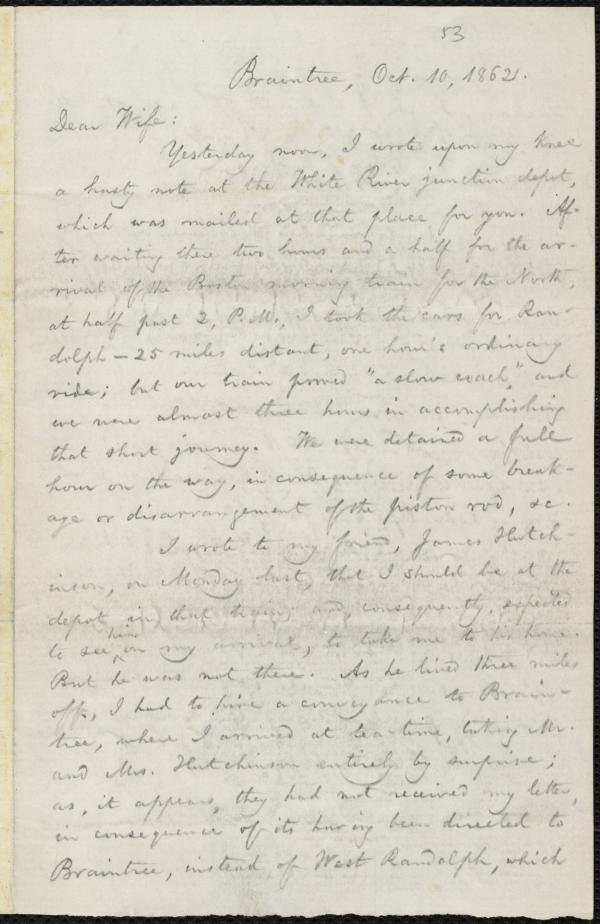 53
Braintree, Oct. 10, 1862.
Dear Wife:
Yesterday noon, I wrote upon my knee
a hasty note at the White River junction depot,
which was mailed at that place for you. Af-
ter waiting there two hours and a half for the ar-
rival of the Boston morning train for the North,
at half past 2, P.M., I took the cars for Ran-
dolph — 25 miles distant, one hour's ordinary
ride; but our train proved "a slow coach," and
we were almost three hours in accomplishing
that short journey. We were detained a full
hour on the way, in consequence of some break-
age or disarrangement of the piston rod, &c.
I wrote to my friend, James Hutch-
inson, on Monday last, that I should be at the
depot in that train; and, consequently, expected
to see him on my arrival, to take me to his home.
But he was not there. As he lived three miles
off, I had to hire a conveyance to Brain-
tree, where I arrived at tea-time, taking Mr.
and Mrs. Hutchinson entirely by surprise;
as, it appears, they had not received my letter,
in consequence of its having been directed to
Braintree, instead of West Randolph, which